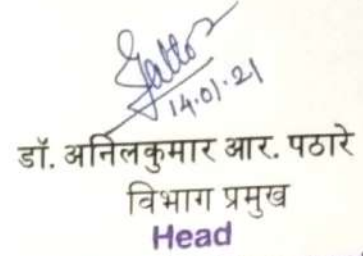 14.01.21
डॉ. अनिलकुमार आर. पठारे
विभाग प्रमुख
Head